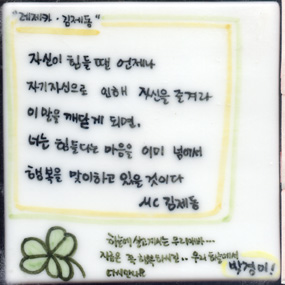 "레제카·김제동"
자신이 힘들 땐 언제나
자기자신으로 인해 자신을 즐겨라
이 말을 깨닫게 되면,
너는 힘들다는 마음을 이미 넘어서
행복을 맞이하고 있을 것이다
MC 김제동
하늘에 살고계시는 우리아빠...
지금은 꼭 행복하시길.. 우리 하늘에서
다시만나요
박경미!